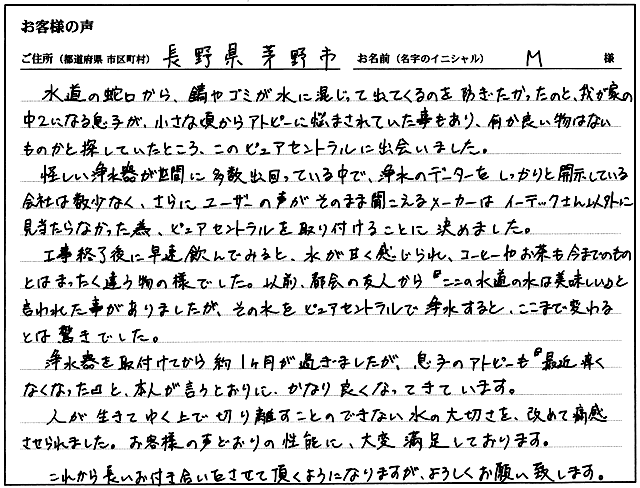 お客様の声
ご住所（都道府県 市区町村） 長野県茅野市 お名前（名字のイニシャル） M 様
水道の蛇口から、錆やゴミが水に混じって出てくるのを防ぎたかったのと、我が家の
中2になる息子が、小さな頃からアトピーに悩まされていた事もあり、何か良い物はない
ものかと探していたところ、このピュアセントラルに出会いました。
怪しい浄水器が世間に多数出回っている中で、浄水のデーターをしっかりと開示している
会社は数少なく、さらにユーザーの声がそのまま聞こえるメーカーはイーテックさん以外に
見当たらなかった為、ピュアセントラルを取り付けることに決めました。
工事終了後に早速飲んでみると、水が甘く感じられ、コーヒーやお茶も今までのもの
とはまったく違う物の様でした。以前、都会の友人から『ここの水道の水は美味しい』と
言われた事がありましたが、その水をピュアセントラルで浄水すると、ここまで変わる
とは驚きでした。
浄水器を取付けてから約1ヶ月が過ぎましたが、息子のアトピーも『最近痒く
なくなった』と、本人が言うとおりに、かなり良くなってきています。
人が生きてゆく上で切り離すことのできない水の大切さを、改めて痛感
させられました。お客様の声どおりの性能に、大変満足しております。
これから長いお付き合いをさせて頂くようになりますが、よろしくお願い致します。